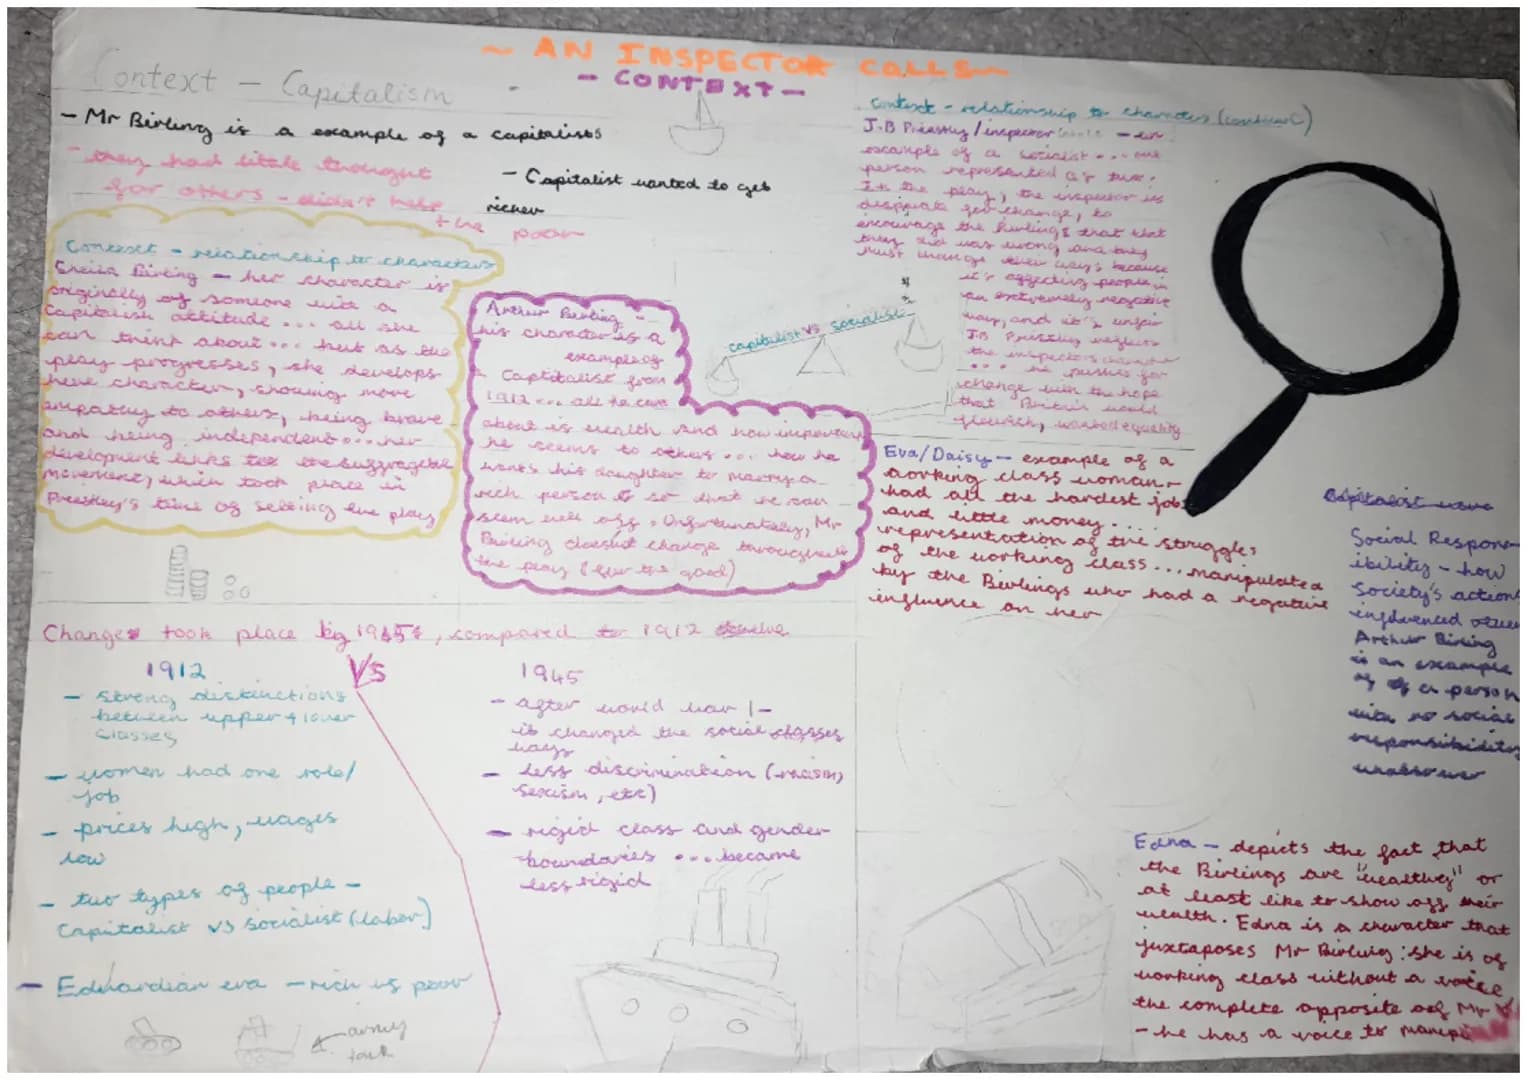 ~ AN INSPECTOR CALLS ~
- CONTEXT -
Context - Capitalism
- Mr Birling is a example of a capitalists
- they had little thought
for others - didn't help
the poor
- Capitalist wanted to get
richer
Context - relationship to characters
Sheila Birling - her character is
originally of someone with a
Capitalist attitude ... all she
can think about ... but as the
play progresses, she develops
her character, showing more
empathy to others, being brave
and being independent ... her
development links to the suffragette
movement, which took place in
Priestley's time of setting the play
Arthur Birling -
his character is a
example of
a Capitalist from
1912 ... all he care
about is wealth and how important
he seems to others ... how he
wants his daughter to marry a
rich person so that he can
seem well off. Unfortunately, Mr
Birling doesn't change throughout
the play (for the good)
capitalist VS socialist
Context - relationship to characters (continued)
J.B Priestley / inspector - an
example of a socialist ... one
person represented as two.
In the play, the inspector is
desperate for change, to
encourage the Birlings that what
they did was wrong and they
must change their ways because
it's affecting people in
an extremely negative
way, and it's unfair
J.B Priestley reflects
the inspectors character
.... he pushes for
change with the hope
that Britain would
flourish, wanted equality
Eva/Daisy - example of a
working class woman -
had all the hardest jobs
and little money ....
representation of the struggles
of the working class ... manipulated
by the Birlings who had a negative
influence on her
Capitalist were
Social Respons-
ibility - how
Society's action
influenced other
Arthur Birling
is an example
of a person
with no social
responsibility
whatsoever
Changes took place by 1945, compared to 1912
1912
VS
1945
- strong distinctions
between upper + lower
classes
- women had one role/
job
- prices high, wages
low
- two types of people -
Capitalist VS socialist (labor)
- Edwardian era - rich vs poor
- after world war 1 -
it changed the social classes
ways
- less discrimination (racism,
sexism, etc)
- rigid class and gender
boundaries ... became
less rigid
army
tank
Edna - depicts the fact that
the Birlings are "wealthy" or
at least like to show off their
wealth. Edna is a character that
juxtaposes Mr Birling: she is of
working class without a voice
the complete opposite of Mr B
- he has a voice to manipu